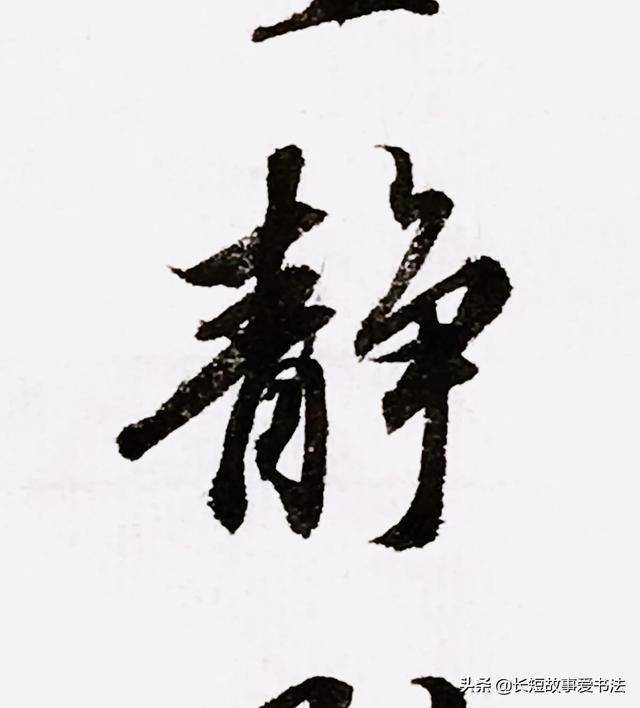 静
头条 @长短故事爱书法